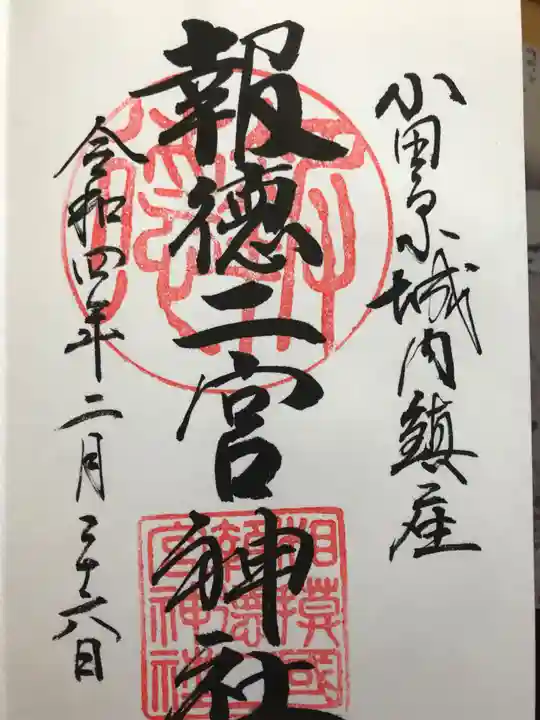 小田原城内鎮座
報徳二宮神社
令和四年二月二十六日
相模國
報徳二
宮神社